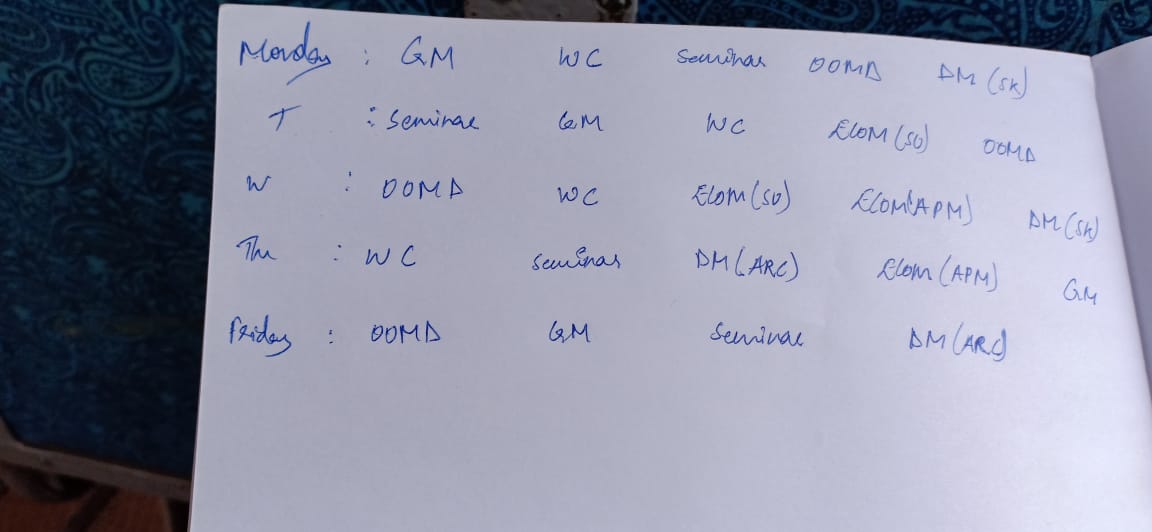 Monday : GM WC Seminar OOMD DM (SK)
T : Seminar GM WC ECOM (SU) OOMD
W : OOMD WC ECOM (SU) ECOM (APM) DM (SK)
Thu : WC Seminar DM (ARC) ECOM (APM) GM
Friday : OOMD GM Seminar DM (ARC)